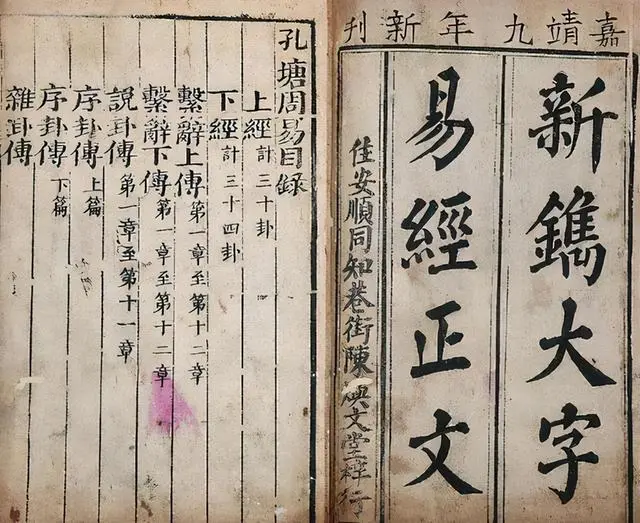 嘉靖九年新刊
新鐫大字
易經正文
住安順同知巷街陳煥文堂梓行
孔塘周易目录
上經 計三十卦
下經 計三十四卦
繫辭上傳 第一章至第十二章
繫辭下傳 第一章至第十二章
說卦傳 第一章至第十一章
序卦傳 上篇
序卦傳 下篇
雜卦傳